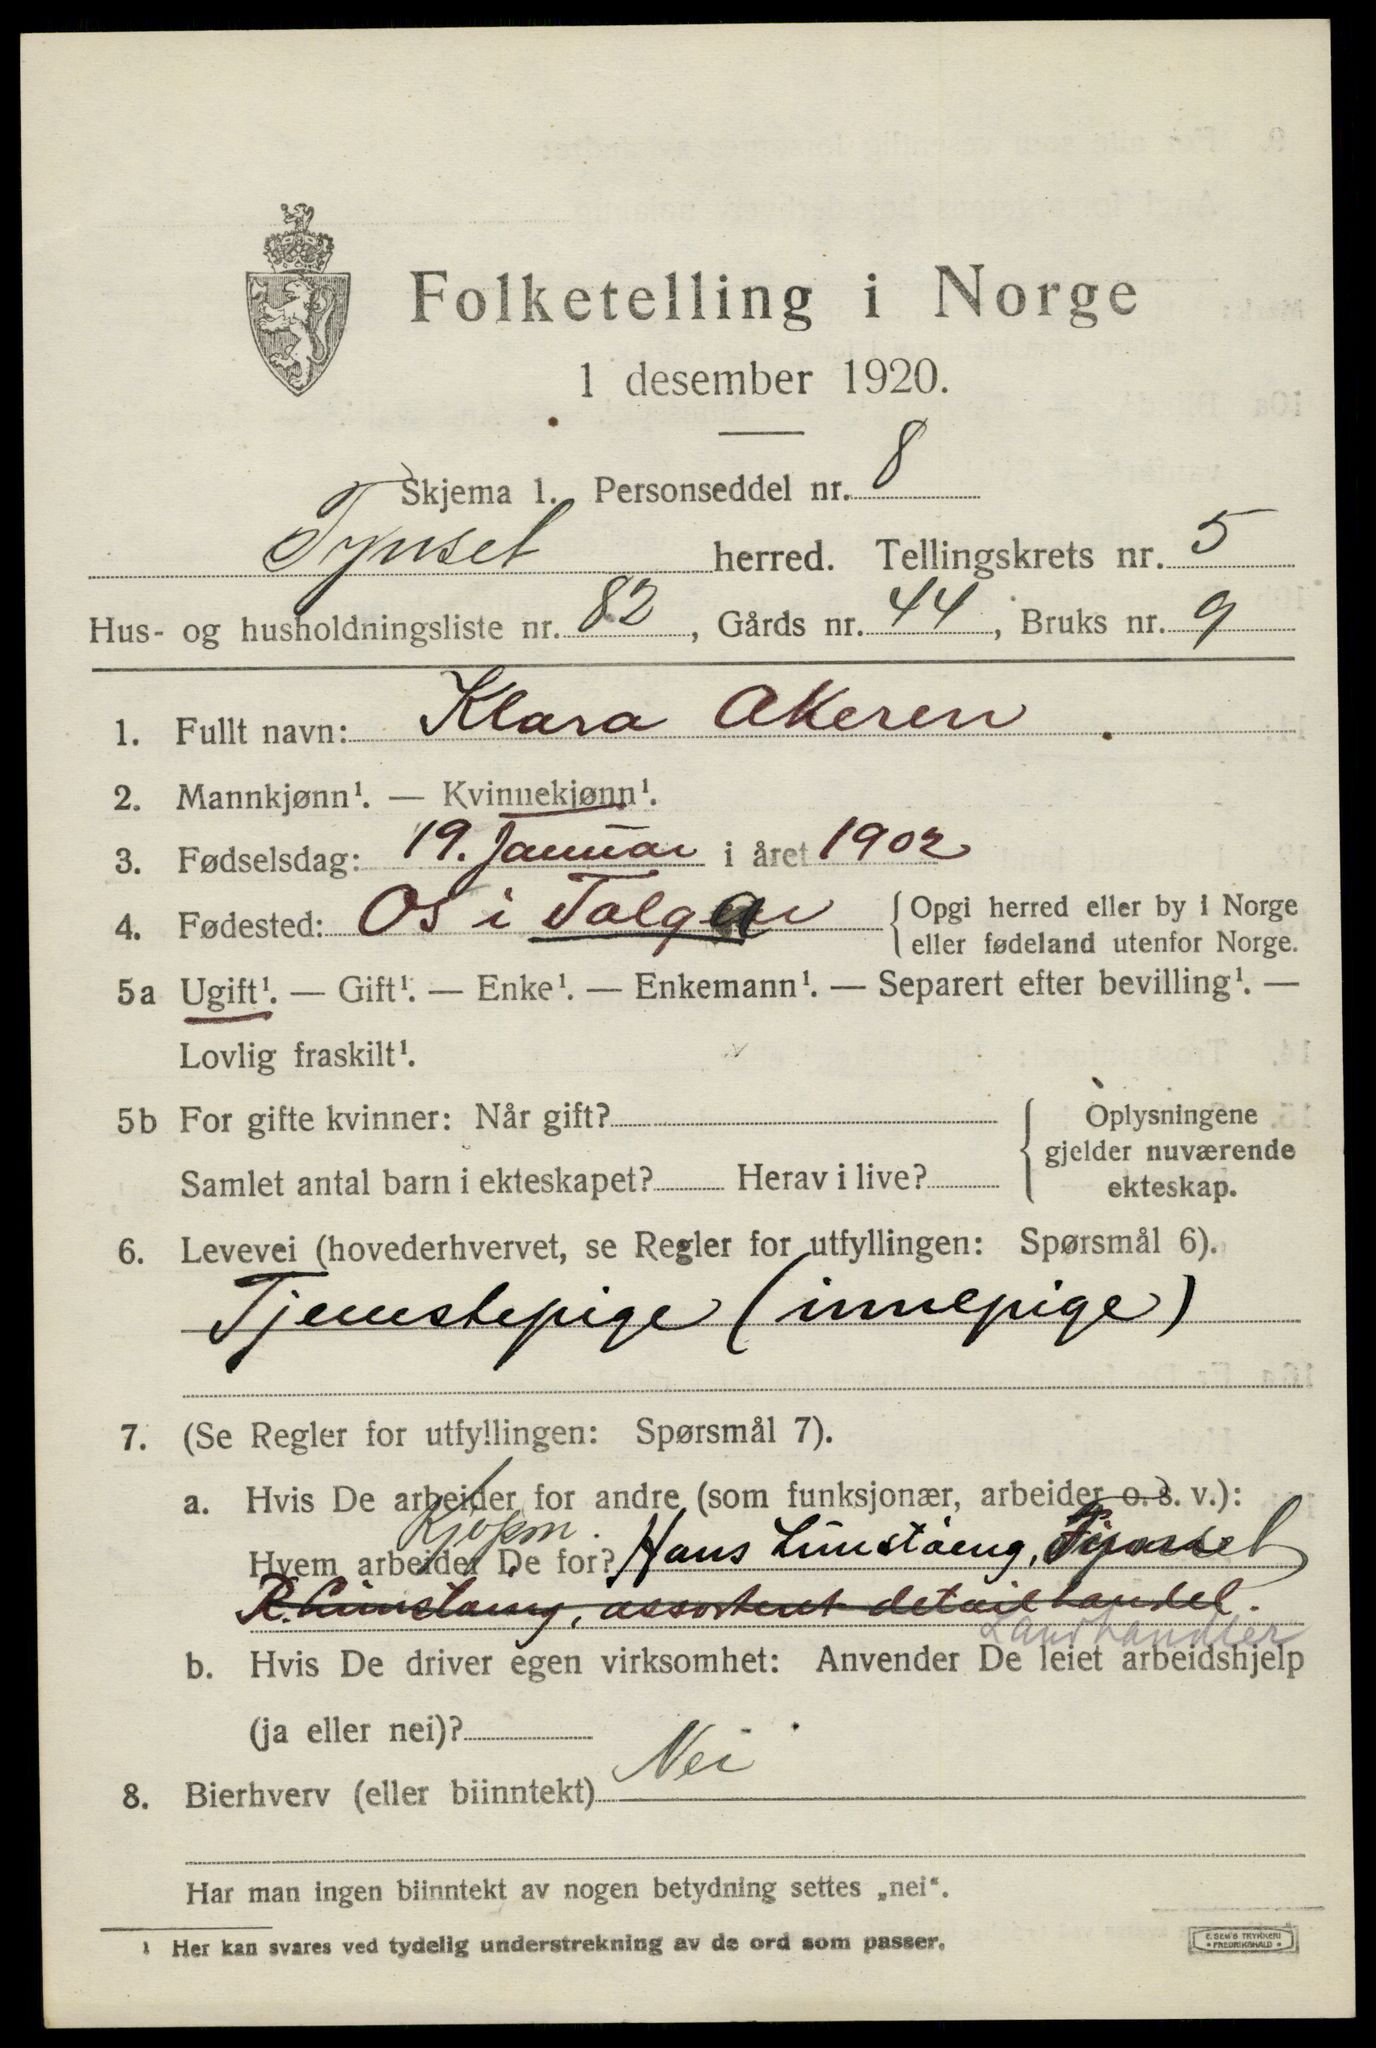 Folketelling i Norge
1 desember 1920.
Skjema 1. Personseddel nr. 8
Tynset herred. Tellingskrets nr. 5
Hus- og husholdningsliste nr. 82, Gårds nr. 44, Bruks nr. 9
1. Fullt navn: Klara Akeren
2. Mannkjønn¹. — Kvinnekjønn¹.
3. Fødselsdag: 19. Januar i året 1902
4. Fødested: Os i Tolga { Opgi herred eller by i Norge
eller fødeland utenfor Norge.
5a Ugift¹. — Gift¹. — Enke¹. — Enkemann¹. — Separert efter bevilling¹. —
Lovlig fraskilt¹.
5b For gifte kvinner: Når gift? { Oplysningene
gjelder nuværende
Samlet antal barn i ekteskapet? Herav i live? ekteskap.
6. Levevei (hovederhvervet, se Regler for utfyllingen: Spørsmål 6).
Tjenestepige (innepige)
7. (Se Regler for utfyllingen: Spørsmål 7).
a. Hvis De arbeider for andre (som funksjonær, arbeider o. s. v.):
Kjøpm.
Hvem arbeider De for? Hans Limstaeng, Tynset
R. Limstaeng, assortert detailhandel.
Landhandler
b. Hvis De driver egen virksomhet: Anvender De leiet arbeidshjelp
(ja eller nei)?
8. Bierhverv (eller biinntekt) Nei
Har man ingen biinntekt av nogen betydning settes „nei“.
¹ Her kan svares ved tydelig understrekning av de ord som passer.
E. SEM'S TRYKKERI
• FREDRIKSHALD •